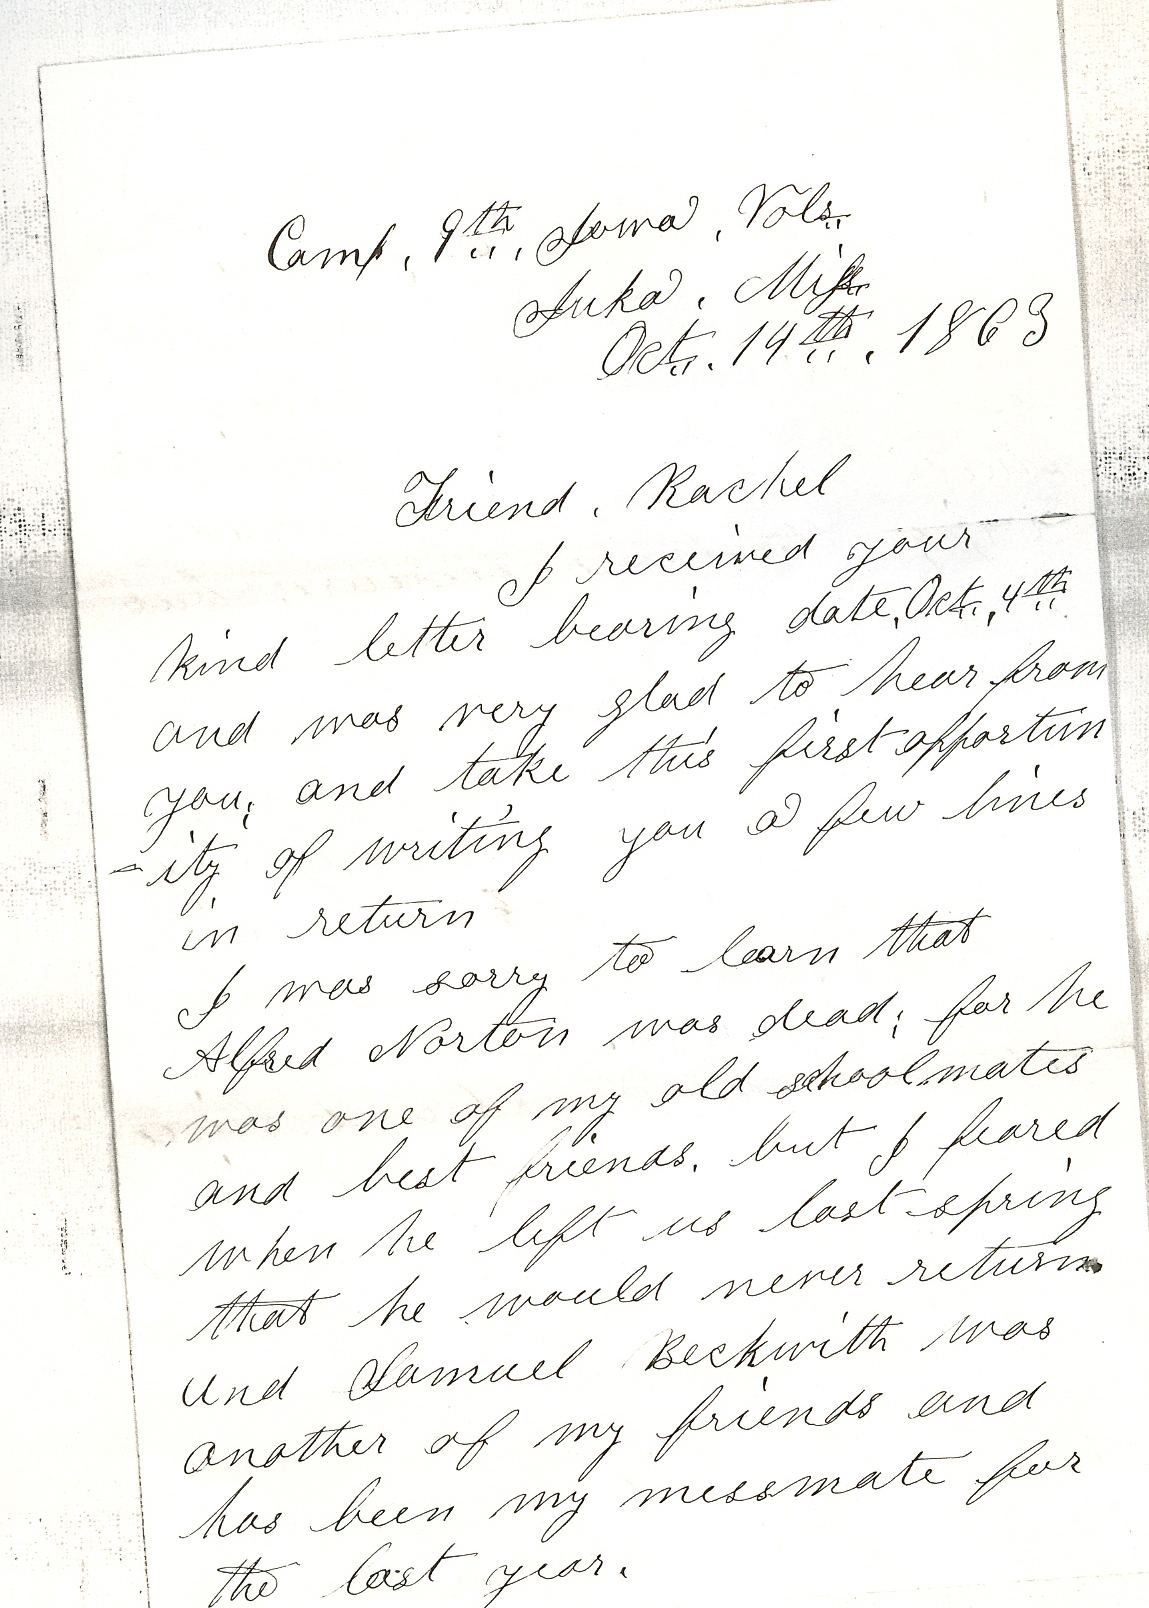 Camp, 9th, Iowa, Vols.
Iuka, Miss
Oct. 14th, 1863
Friend, Rachel
I received your
kind letter bearing date, Oct., 4th
and was very glad to hear from
you; and take this first opportun
-ity of writing you a few lines
in return
I was sorry to learn that
Alfred Norton was dead; for he
was one of my old schoolmates
and best friends. but I feared
when he left us last spring
that he would never return
And Samuel Beckwith was
another of my friends and
has been my messmate for
the last year.